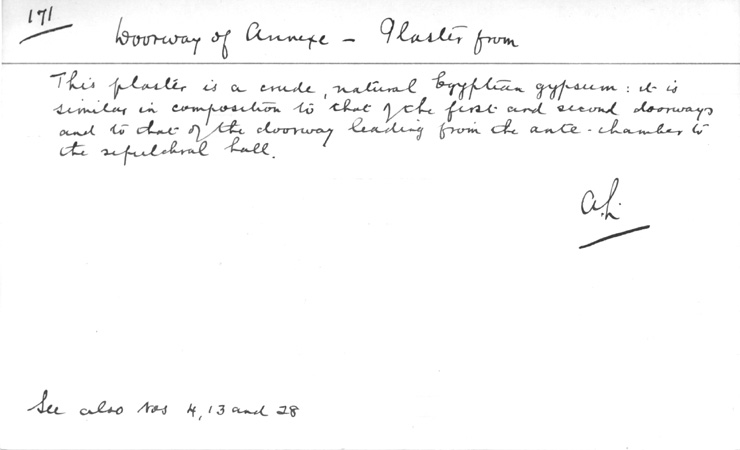 171
Doorway of Annexe – Plaster from
This plaster is a crude, natural Egyptian gypsum: it is
similar in composition to that of the first and second doorways
and to that of the doorway leading from the ante-chamber to
the sepulchral hall.
A.L.
See also Nos 4, 13 and 28